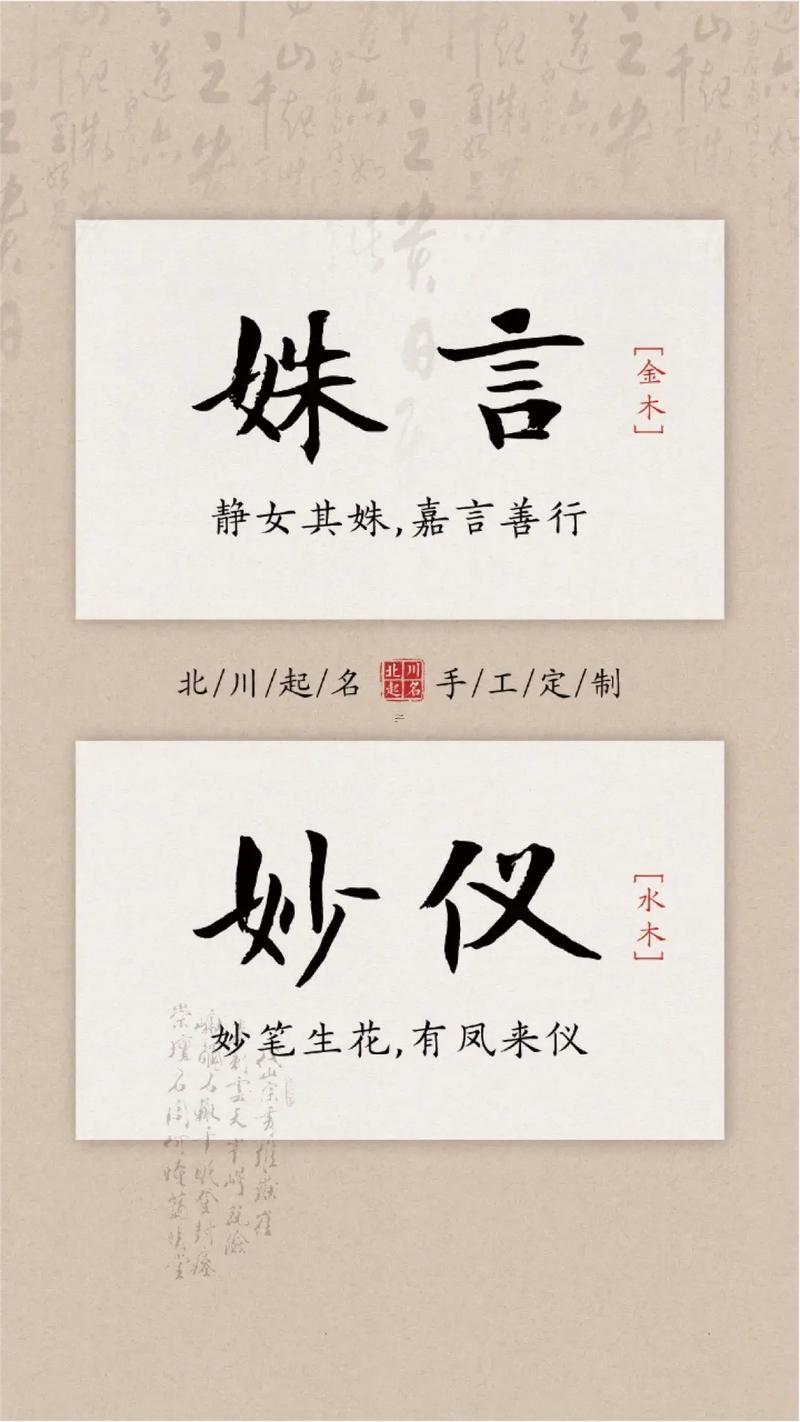 姝言
[金木]
静女其姝,嘉言善行
北/川/起/名 北川起名 手/工/定/制
妙仪
[水木]
妙笔生花,有凤来仪